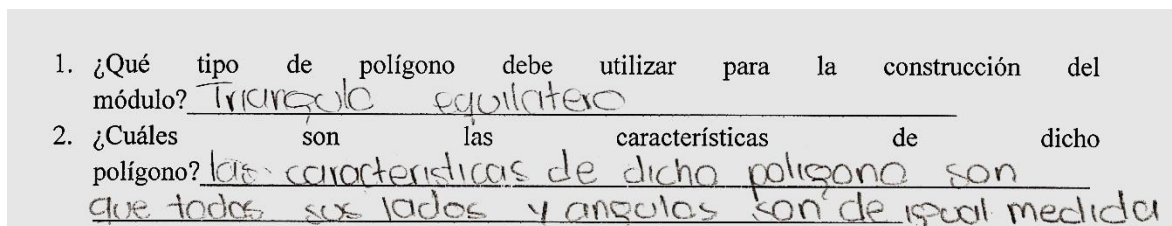 1. ¿Qué tipo de polígono debe utilizar para la construcción del
módulo? Triangulo equilatero
2. ¿Cuáles son las características de dicho
polígono? las caracteristicas de dicho poligono son
que todos sus lados y angulos son de igual medida